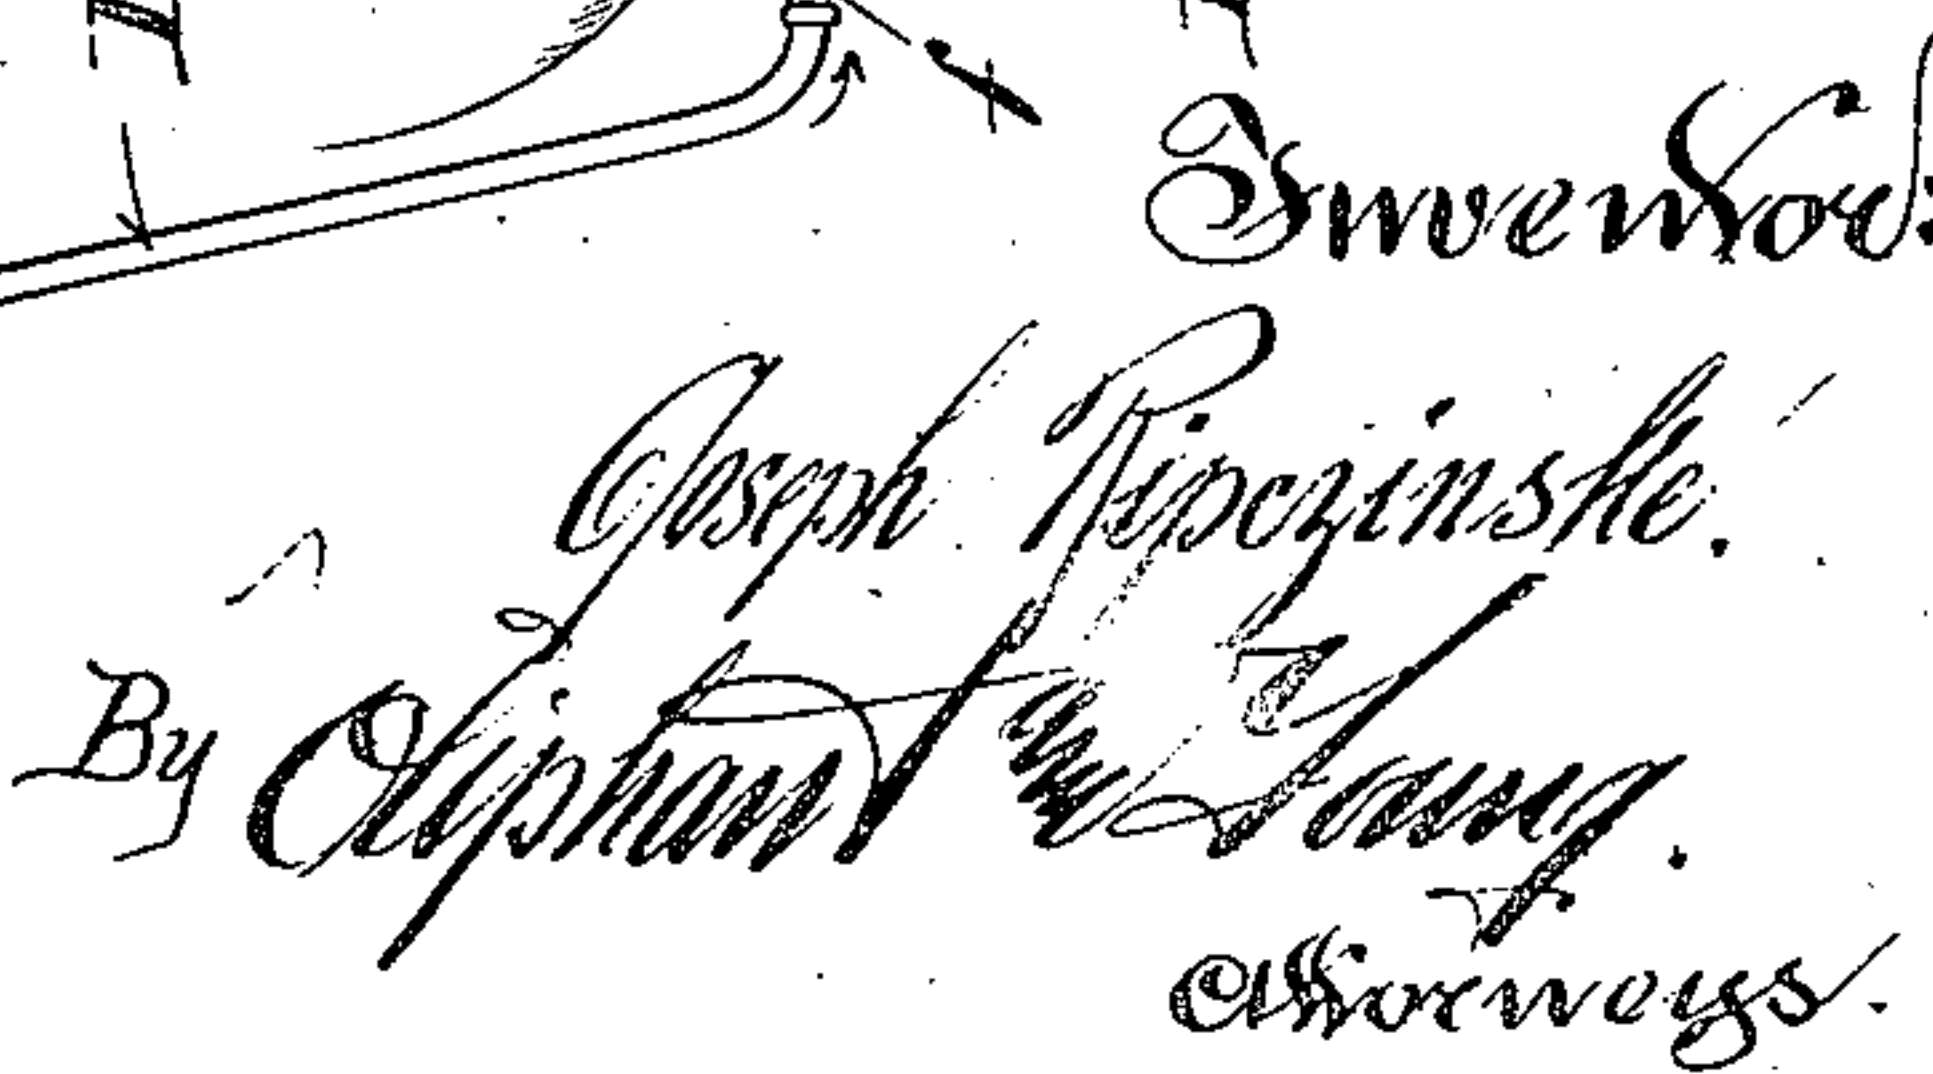 Inventor:
Joseph Ripczinske.
By Oliphant and Young.
Attorneys.